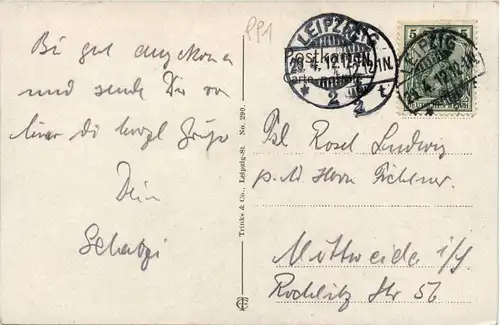 PP1
Bin gut angekommen
und sende Dir von
hier die herzl Grüße
Dein
Schatzi
Trinks & Co., Leipzig-St. No. 290.
Postkarte
Carte
LEIPZIG
20.4.12.12-1N.
2
2 t
5 5
DEUTSCHES REICH
LEIPZIG
20.4.12.12-1N.
Frl Rosel Ludwig
p. A Herrn Fichtner
Mittweida i/S.
Rochlitz Str 56